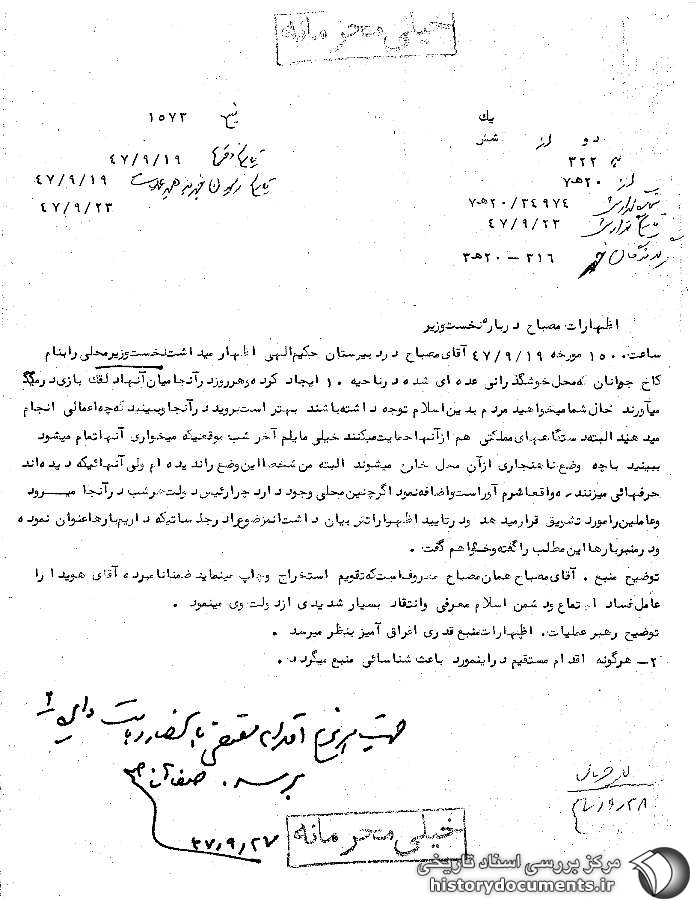 خیلی محرمانه
یک
۱۵۷۳
دو از شش
۳۲۲
از ۲۰ه۷
تاریخ وقوع ۴۷/۹/۱۹
۴۷/۹/۱۹
شماره گزارش ۲۰/۳۴۹۷۴ه۷
۴۷/۹/۲۳
تاریخ گزارش ۴۷/۹/۲۳
۳۱۶ - ۲۰ه۳
اظهارات مصباح درباره نخست‌وزیر
ساعت ۱۵۰۰ مورخه ۴۷/۹/۱۹ آقای مصباح در دبیرستان حکیم‌الهی اظهار میداشت نخست‌وزیر محلی را بنام
کاخ جوانان که محل خوشگذرانی عده‌ای شده در ناحیه ۱۰ ایجاد کرده و هر روز در آنجا میان آنها دلقک بازی در میآ
میآورند حال شما میخواهید مردم به دین اسلام توجه داشته باشند بهتر است بروید در آنجا و ببینید که چه اعمالی انجام
میدهند البته دستگاههای مملکتی هم از آنها حمایت میکنند خیلی مایلم آخر شب موقعیکه میخواری آنها تمام میشود
ببینید با چه وضع ناهنجاری از آن محل خارج میشوند البته من شخصا این وضع را ندیده‌ام ولی آنهائیکه دیده‌اند
حرفهائی میزنند که واقعا شرم آور است و اضافه نمود اگر چنین محلی وجود دارد چرا رئیس دولت هر شب در آنجا میرود
و عاملین را مورد تشویق قرار میدهد و در تایید اظهاراتش بیان داشت این موضوع را در جلساتیکه داریم بارها عنوان نموده
و در منبر بارها این مطلب را گفته و خواهم گفت .
توضیح منبع . آقای مصباح همان مصباح معروف است که تقویم استخراج و چاپ مینماید ضمنا نامبرده آقای هویدا را
عامل فساد اجتماع و دشمن اسلام معرفی و انتقاد بسیار شدیدی از دولت وی مینمود .
توضیح رهبر عملیات . اظهارات منبع قدری اغراق آمیز بنظر میرسد .
۲- هرگونه اقدام مستقیم در اینمورد باعث شناسائی منبع میگردد .
اقدام مقتضی با
برسد.
۲۸/۹
۴۷/۹/۲۷
خیلی محرمانه
مرکز بررسی اسناد تاریخی
historydocuments.ir